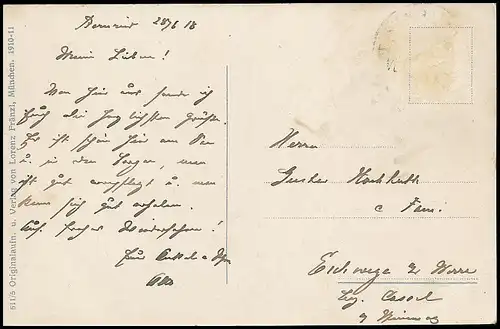 Bernried 28/6 18
Meine Lieben!
Von hier aus sende ich
Euch die herzlichsten Grüße.
Es ist schön hier am See
u. in den Bergen, man
ist gut verpflegt u. man
kann sich gut erholen.
Auf frohes Wiedersehen!
Euer
Otto
Herrn
Gustav Hochhuth
Fam.
Eschwege a/ Werra
bez. Cassel
511/5 Originalaufn. u. Verlag von Lorenz Fränzl, München. 1910-11